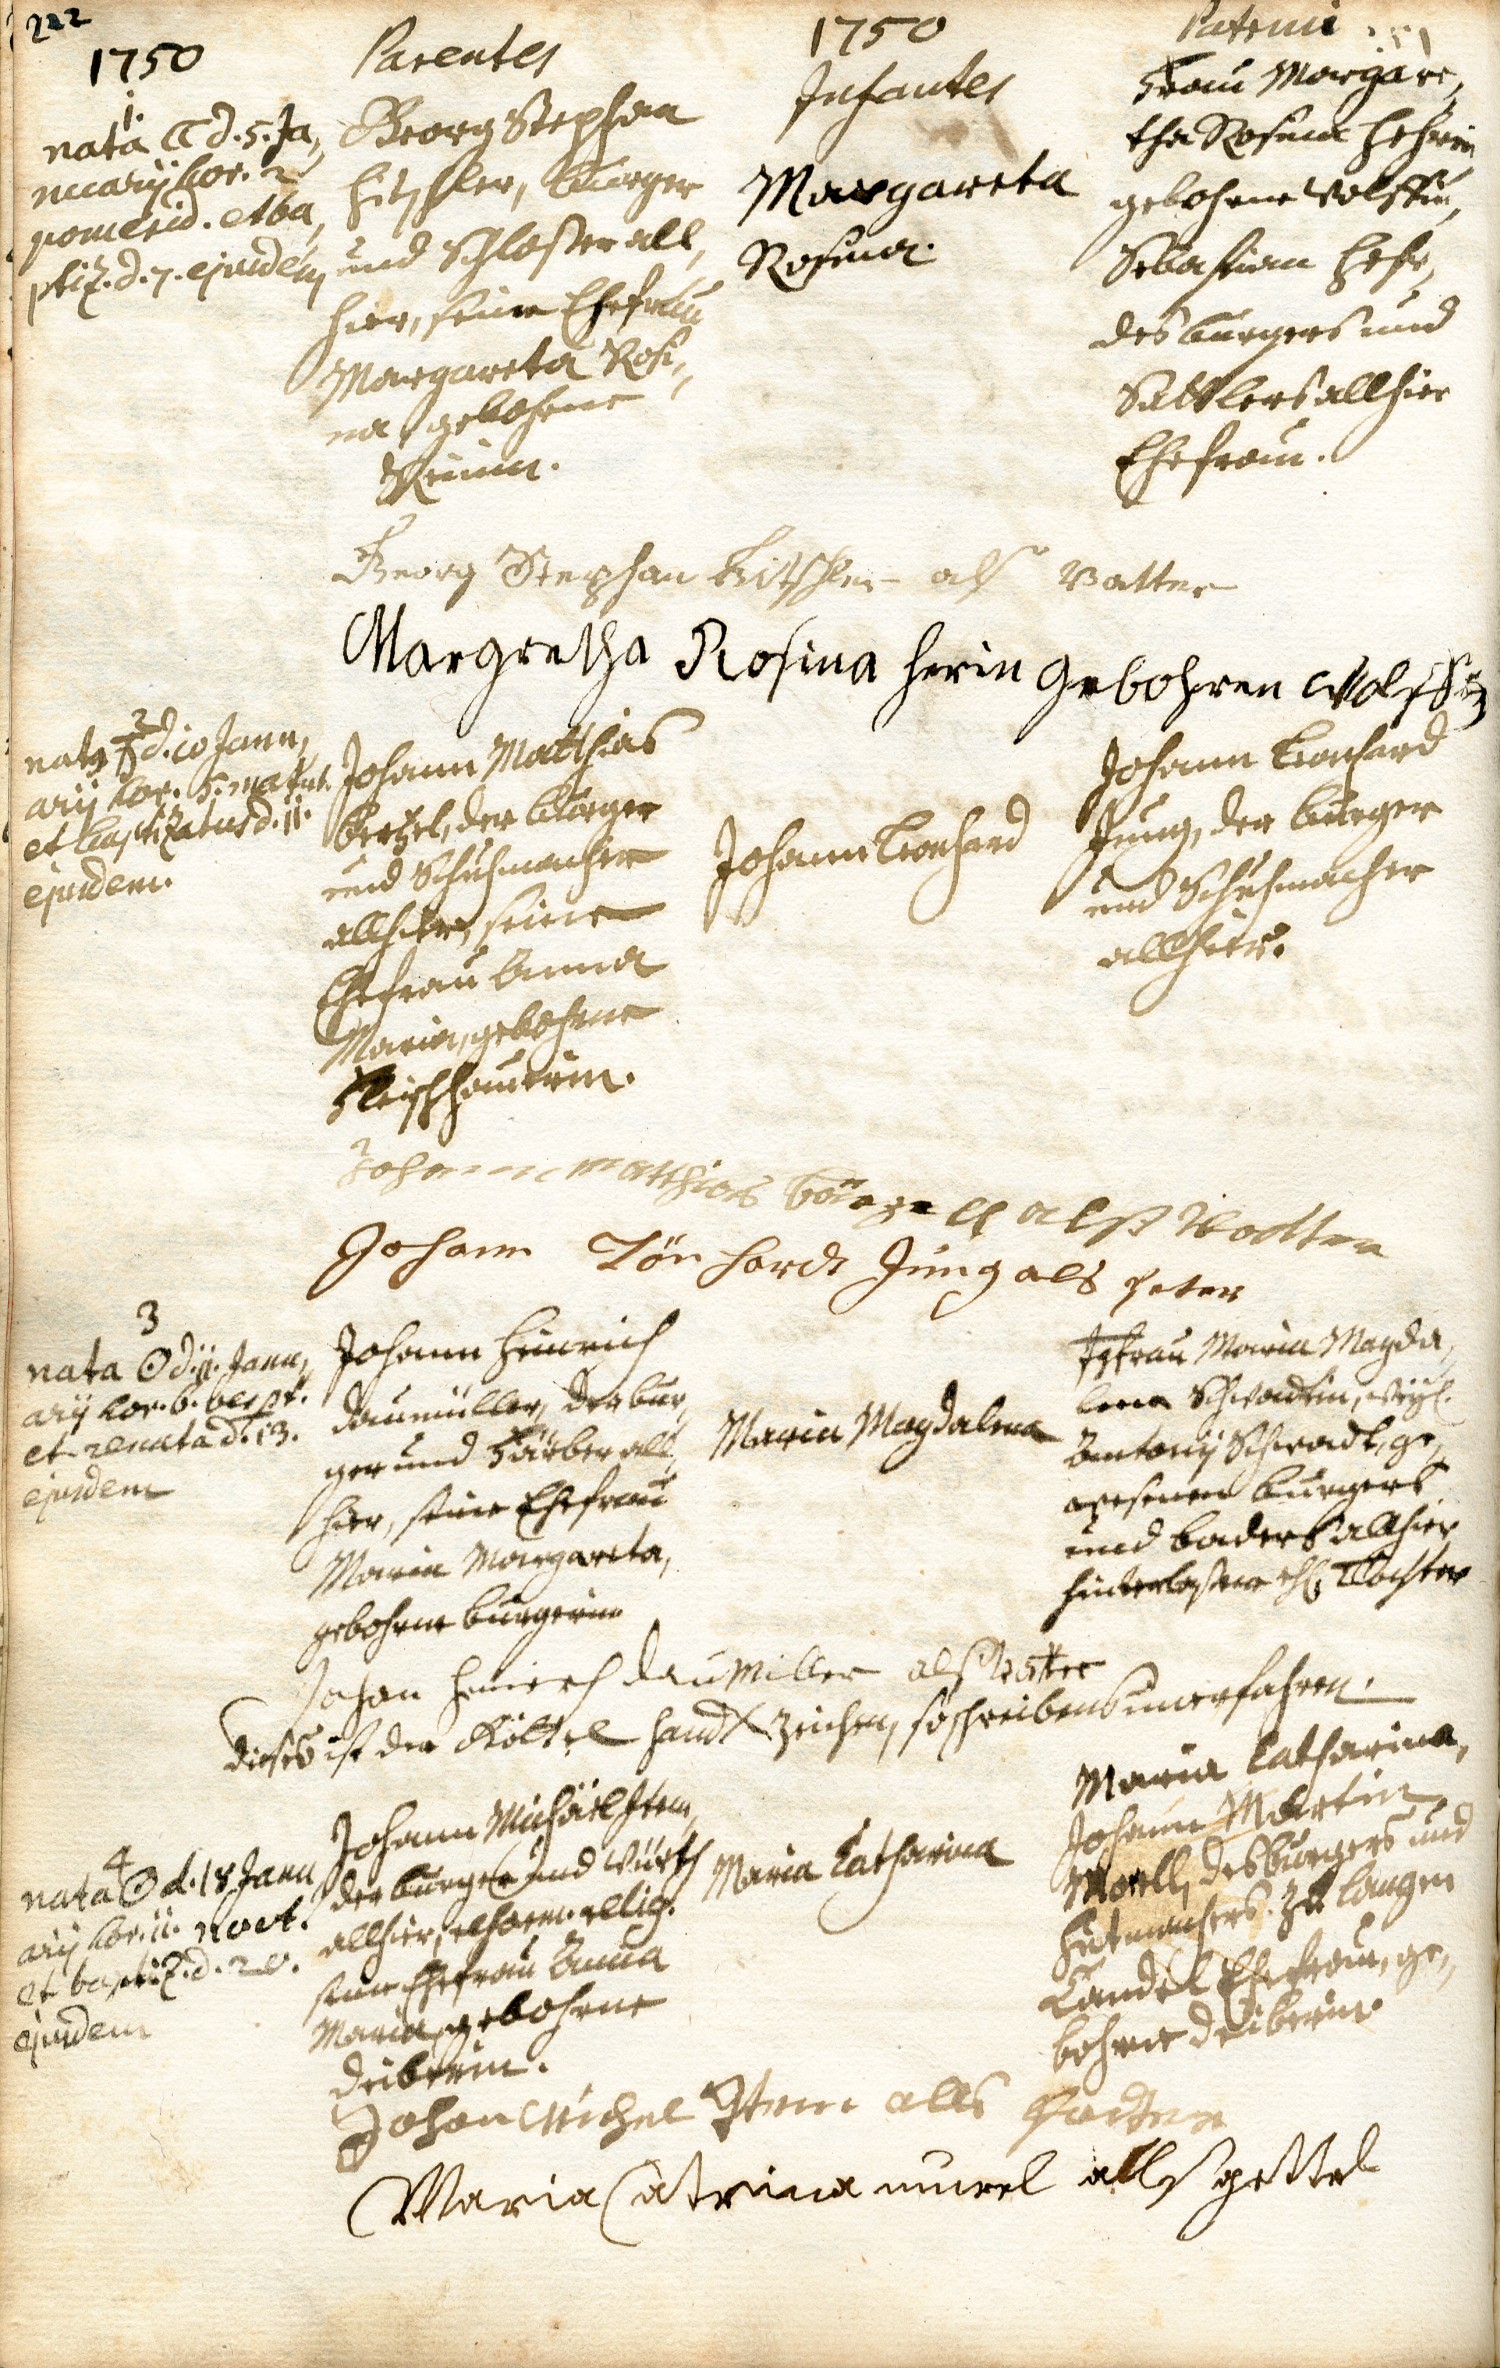 222
1750
Parentes
1750
Infantes
Patrini
1.
nata d. 5. Ja,
nuarÿ hor. 2
pomerid. et ba,
ptiz. d. 7. ejusdem
Georg Stephan
burger
und Schlosser all,
hier, seine Ehefrau
Margareta Rosi,
na, gebohrne
Margareta
Rosina.
Frau Margare,
tha Rosina
gebohrne Wolffin,
Sebastian
des burgers und
Sattlers allhier
Ehefrau.
Georg Stephan als Vatter
Margretha Rosina herin gebohren Wolffin
2
nat9 d. 10 Janu,
arÿ hor. 5. matut.
et baptizatus d. 11.
ejusdem.
Johann Matthias
der burger
und Schuhmacher
allhier, seine
Ehefrau Anna
Maria, gebohrne
Fleischhauerin.
Johann Leonhard
Johann Leonhard
Jung, der burger
und Schuhmacher
allhier.
Johann Matthias alß Vatter
Johann Lönhardt Jung als Peter
3
nata ☉ d. 11. Janu,
arÿ hor. 6. vespt.
et renata d. 13.
ejusdem
Johann Heinrich
Daumüller, der bur,
ger und Färber all,
hier, seine Ehefrau
Maria Margareta,
gebohrne burgerin
Maria Magdalena
Jgfrau Maria Magda,
lena Schwadtin, weÿl.
Antonÿ Schwadt, ge,
wesenen burgers
und baders allhier
hinterlaßene ehl. Tochter
Johan Heinrich Daumiller als Vatter
dieses ist der Göttel handt zeichen, so schreibens unerfahren.
4
nata ☉ d. 18 Janu
arÿ hor. 11. noct.
et baptiz. d. 20.
ejusdem
Johann Michäel Stem,
der burger und Würth
allhier, reform. relig.
seine Ehefrau Anna
Maria, gebohrne
Deiberin.
Maria Catharina
Maria Catharina,
Johann Martin
Morell, des burgers und
Hutmachers zu Langen
Candel Ehefrau, ge,
bohrne Deiberin
Johan Michel Stem alls Vadter
Maria Catrina murel alls gettel